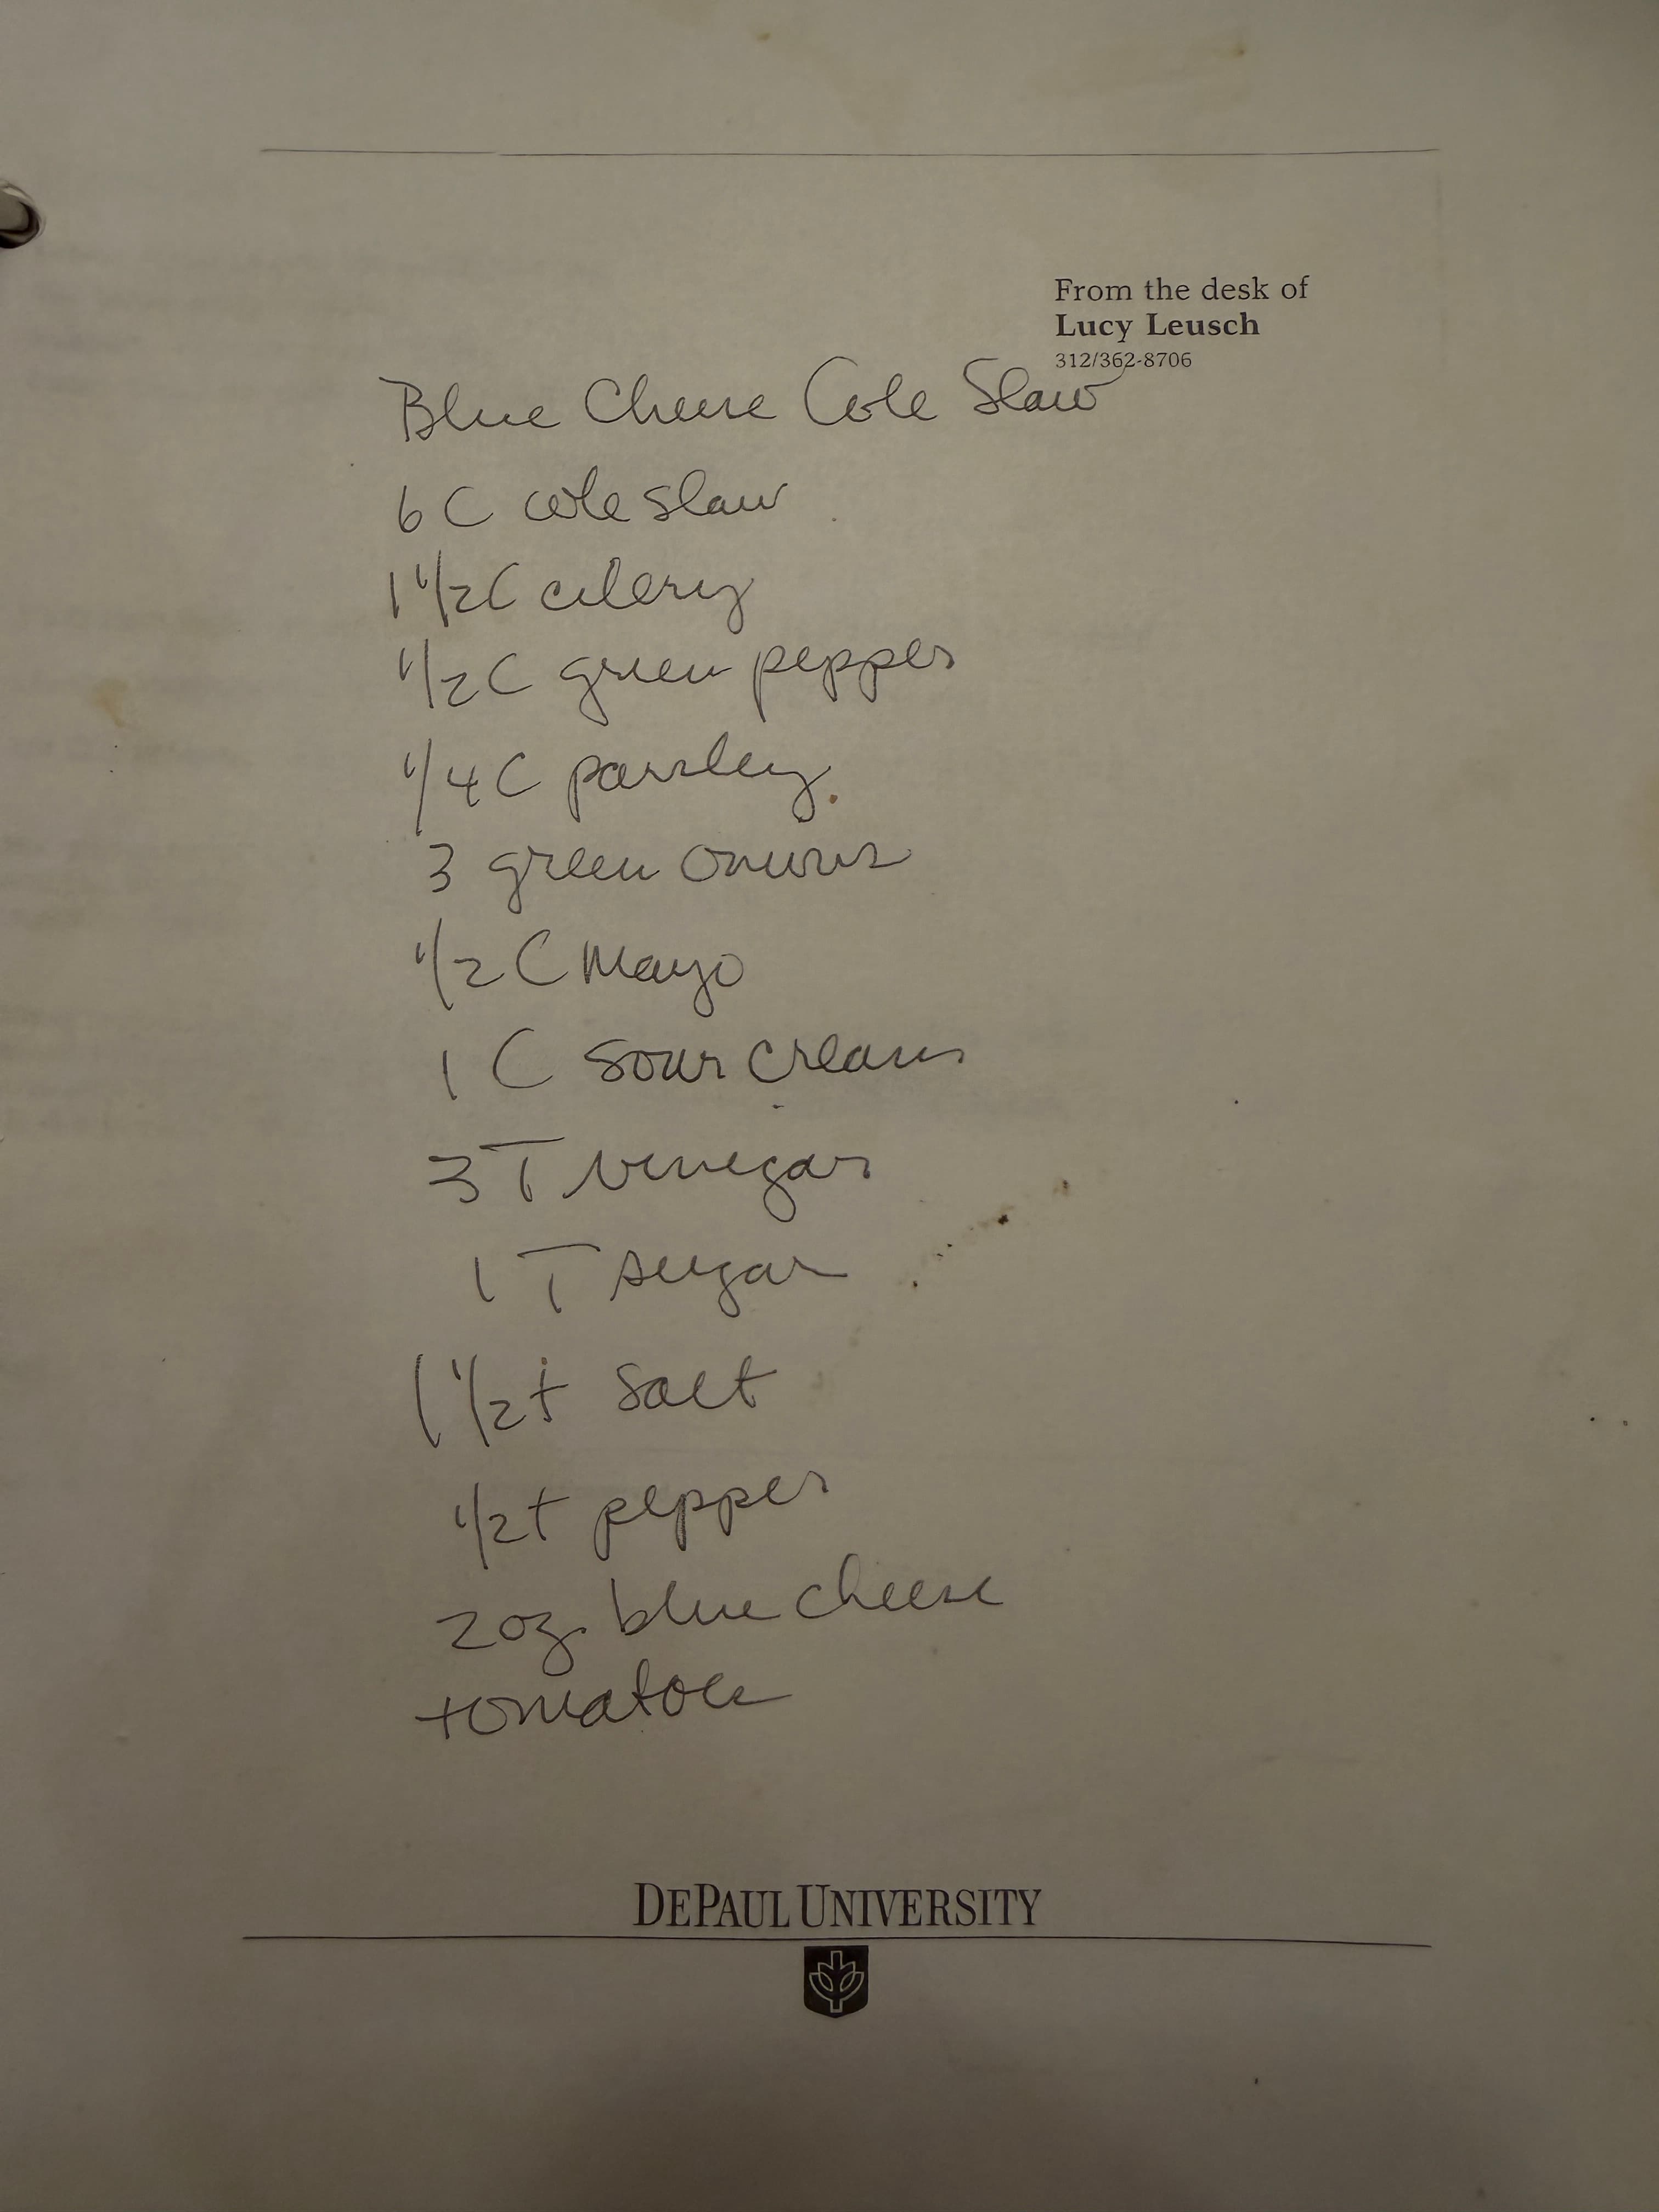 From the desk of
Lucy Leusch
312/362-8706
Blue Cheese Cole Slaw
6 C cole slaw
1 1/2 C celery
1/2 C green pepper
1/4 C parsley
3 green onions
1/2 C Mayo
1 C sour cream
3 T vinegar
1 T sugar
1 1/2 t salt
1/2 t pepper
2 oz. blue cheese
tomatoes
DEPAUL UNIVERSITY